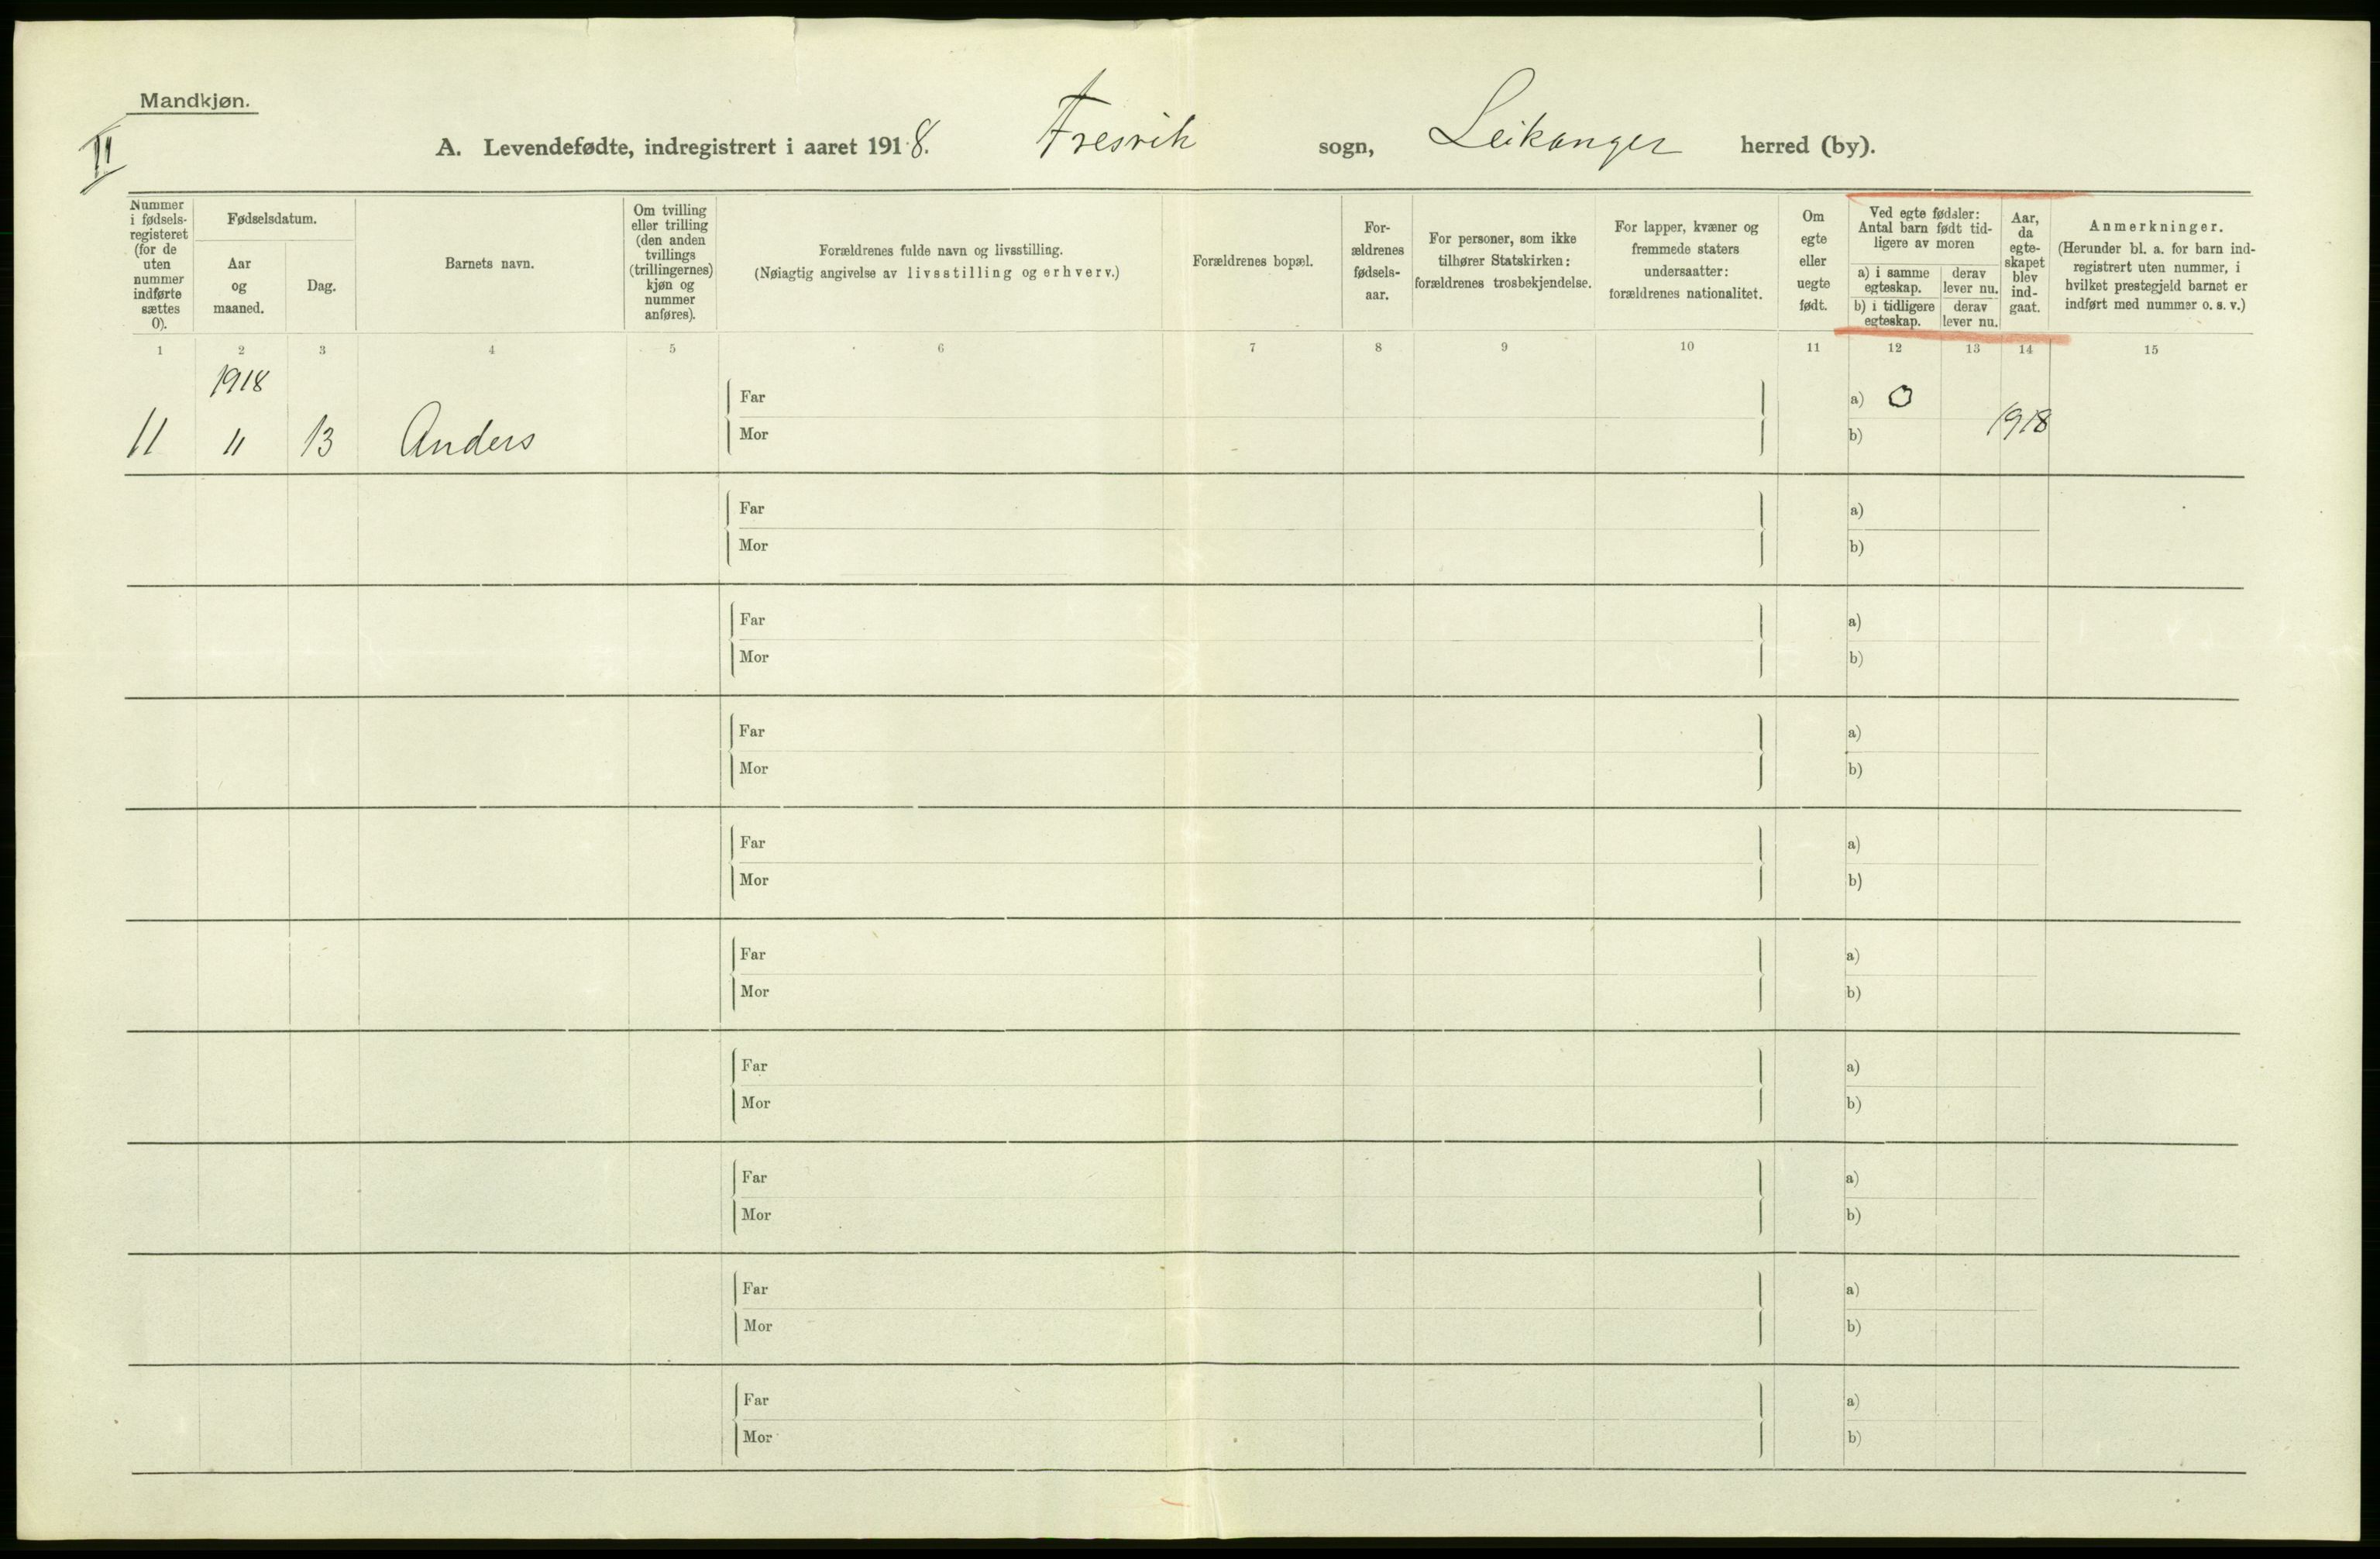 Mandkjøn.
II
A. Levendefødte, indregistrert i aaret 1918. Fresvik sogn, Leikanger herred (by).
Nummer
i fødsels-
registeret
(for de
uten
nummer
indførte
sættes
0).
Fødselsdatum.
Aar
og
maaned.
Dag.
Barnets navn.
Om tvilling
eller trilling
(den anden
tvillings
(trillingernes)
kjøn og
nummer
anføres).
Forældrenes fulde navn og livsstilling.
(Nøiagtig angivelse av livsstilling og erhverv.)
Forældrenes bopæl.
For-
ældrenes
fødsels-
aar.
For personer, som ikke
tilhører Statskirken:
forældrenes trosbekjendelse.
For lapper, kvæner og
fremmede staters
undersaatter:
forældrenes nationalitet.
Om
egte
eller
uegte
født.
Ved egte fødsler:
Antal barn født tid-
ligere av moren
a) i samme
egteskap.
derav
lever nu.
b) i tidligere
egteskap.
derav
lever nu.
Aar,
da
egte-
skapet
blev
ind-
gaat.
Anmerkninger.
(Herunder bl. a. for barn ind-
registrert uten nummer, i
hvilket prestegjeld barnet er
indført med nummer o. s. v.)
1 2 3 4 5 6 7 8 9 10 11 12 13 14 15
1918
Far a) 0
11 11 13 Anders Mor b) 1918
Far a)
Mor b)
Far a)
Mor b)
Far a)
Mor b)
Far a)
Mor b)
Far a)
Mor b)
Far a)
Mor b)
Far a)
Mor b)
Far a)
Mor b)
Far a)
Mor b)